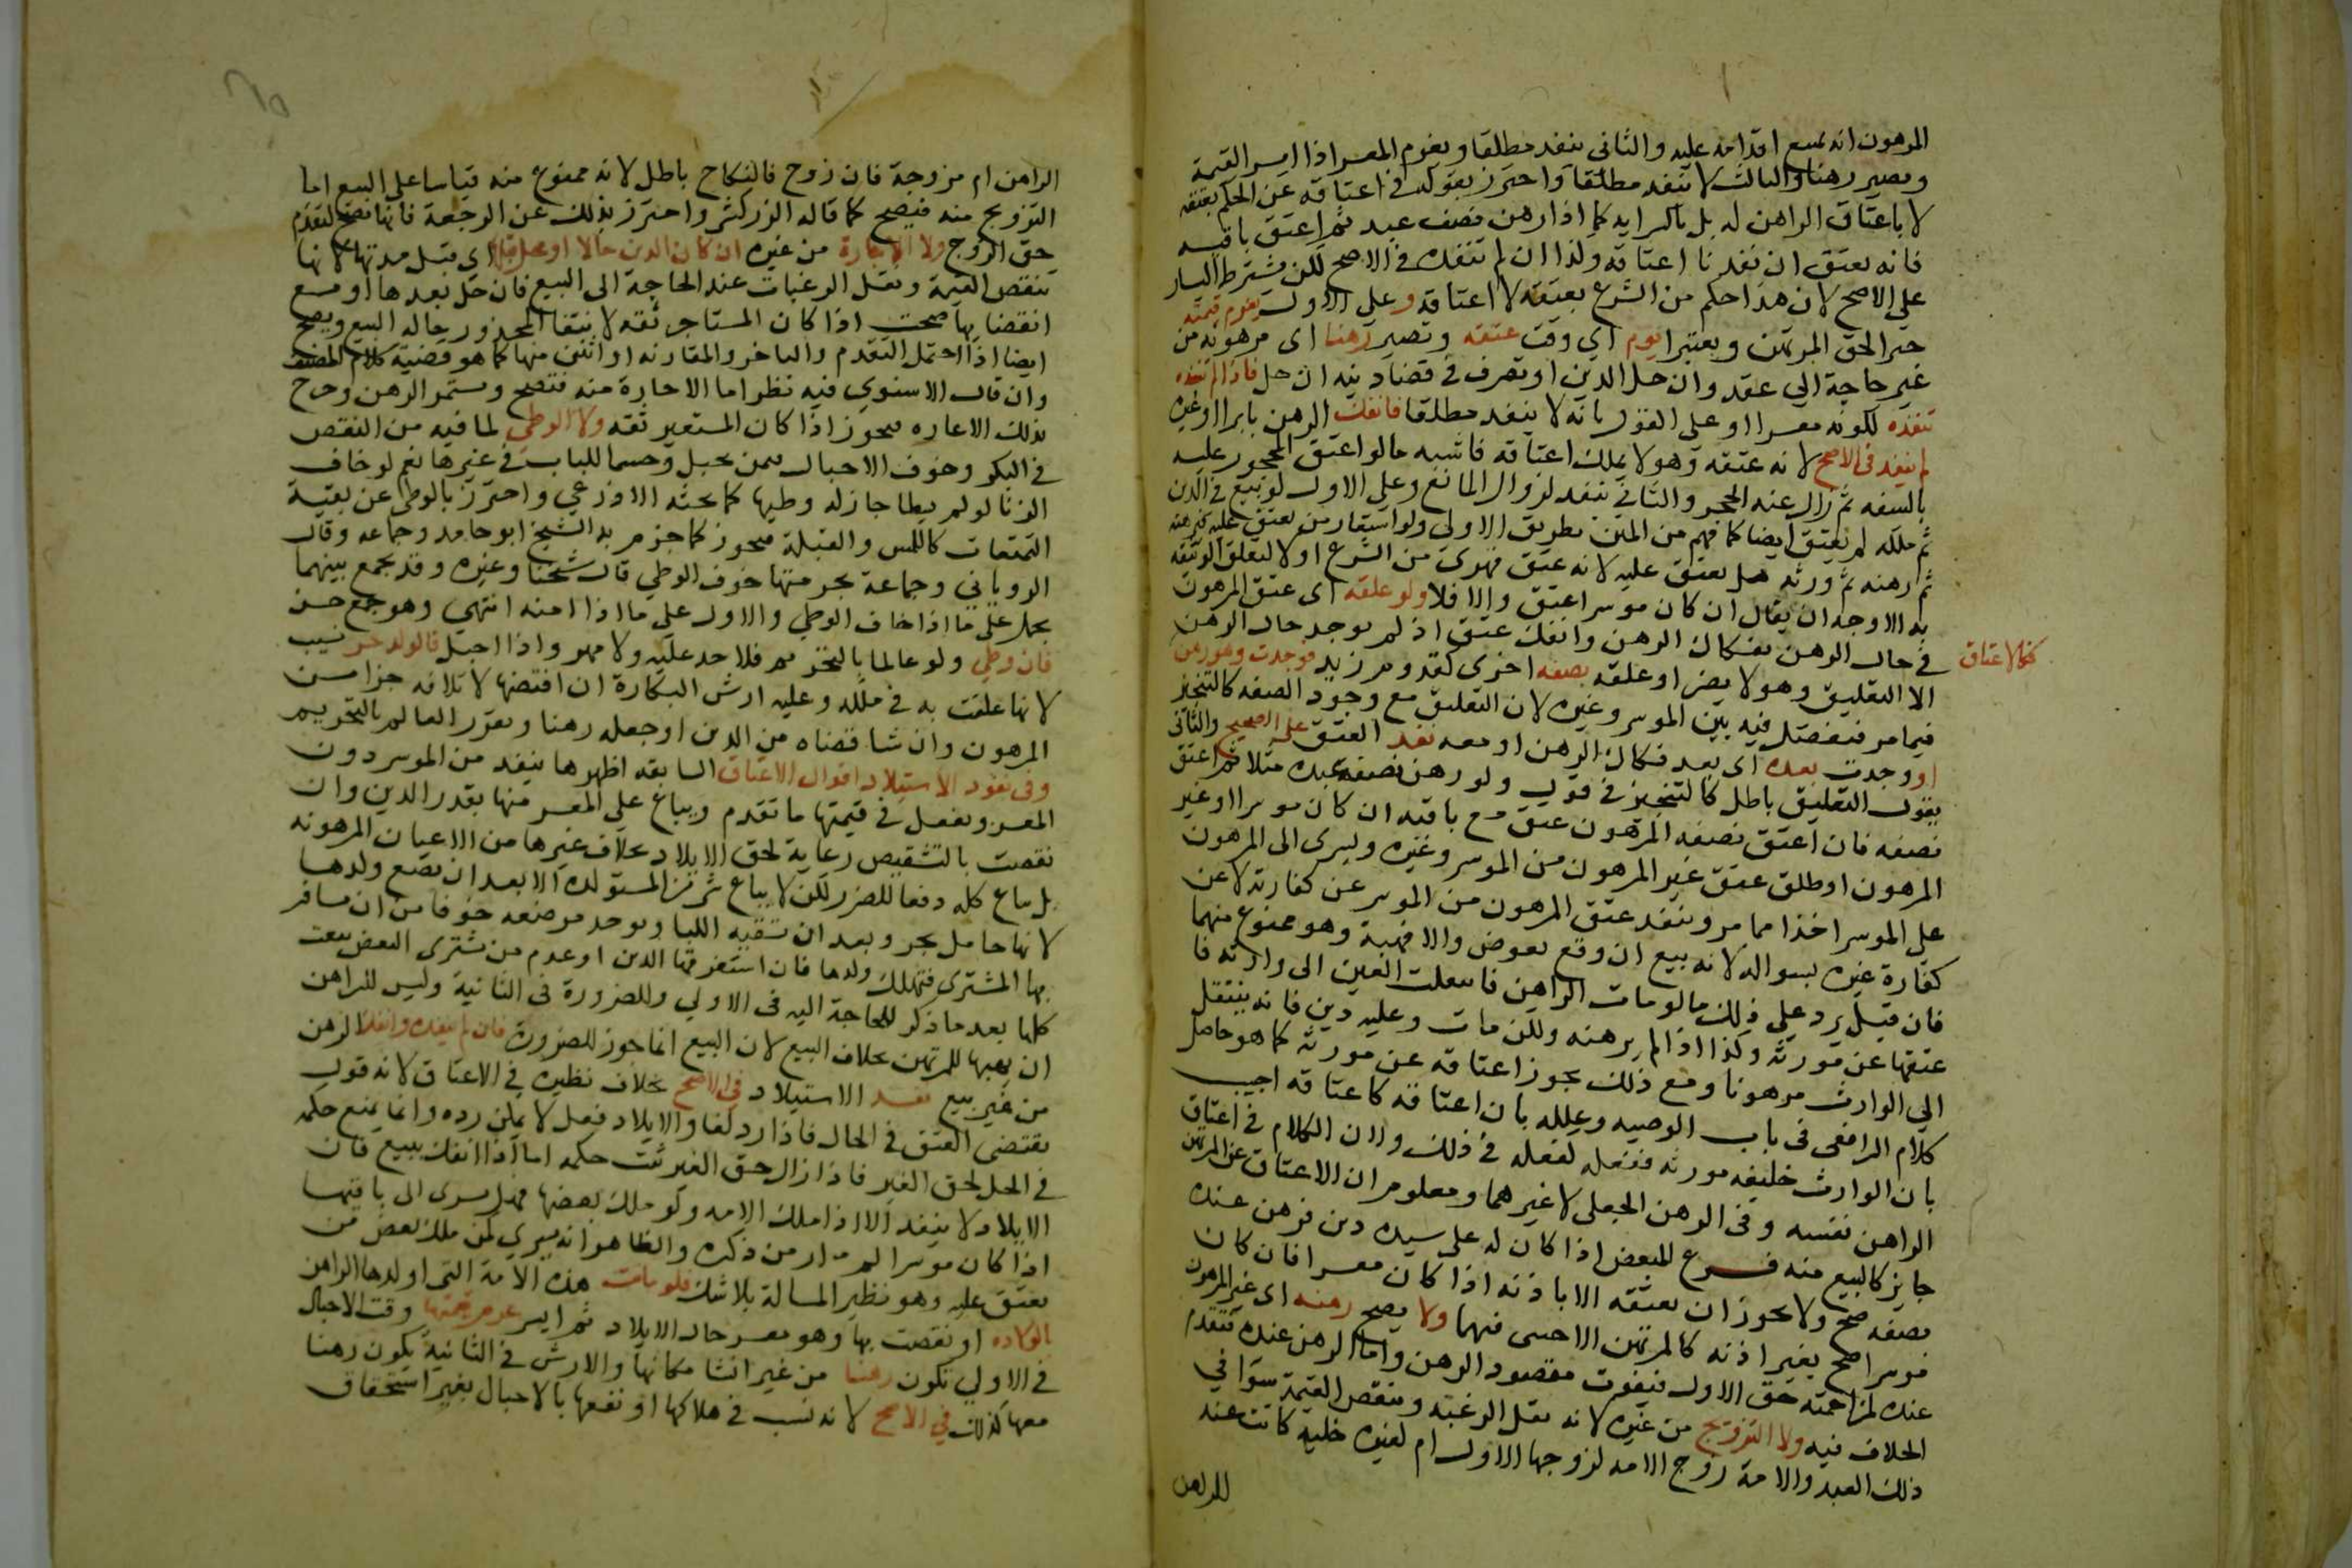 المرهون انه يمنع اقدامه عليه والثاني ينفذ مطلقا ويغرم المعسر اذا ايسر القيمة
وتصير رهنا والثالث لا ينفذ مطلقا واحترز بقوله في اعتاقه عن الحكم بعتقه
لا باعتاق الراهن له بل بالسراية كما اذا رهن نصف عبد ثم اعتق باقيه
فانه يعتق ان نفذنا اعتاقه وكذا ان لم ننفذه في الاصح لكن يشترط اليسار
على الاصح لان هذا حكم من الشرع بعتقه لا اعتاقه وعلى الاول يغرم قيمته
جبرا لحق المرتهن ويعتبر يوم اي وقت عتقه وتصير رهنا اى مرهونة من
غير حاجة الي عقد وان حل الدين او تصرف في قضاء دينه ان حل فاذا لم ننفذه
ننفذه لكونه معسرا او على القول بانه لا ينفذ مطلقا فانفك الرهن بابراء او غيره
لم ينفذ في الاصح لانه عتقه وهو لا يملك اعتاقه فاشبه ما لو اعتق المحجور عليه
بالسفه ثم زال عنه الحجر والثاني ينفذ لزوال المانع وعلى الاول لو بيع في الدين
ثم ملكه لم يعتق ايضا كما فهم من المتن بطريق الاولى ولو استعار من يعتق عليه
ثم رهنه ثم ورثه هل يعتق عليه لانه عتق قهري من الشرع او لا لتعلق الوثيقة
به الاوجه ان يقال ان كان موسرا عتق والا فلا ولو علقه اى عتق المرهون
في حال الرهن بفكاك الرهن وانفك عتق اذ لم يوجد حال الرهن
فكالاعتاق
الا التعليق وهو لا يضر او علقه بصفة اخرى كقدوم زيد فوجدت وهو رهن
فيما مر فيفصل فيه بين الموسر وغيره لان التعليق مع وجود الصفة كالتنجيز
او وجدت بعده اى بعد فكاك الرهن او معه نفذ العتق على الصحيح والثاني
يقول التعليق باطل كالتنجيز في قول ولو رهن نصف عبده مثلا ثم اعتق
نصفه فان اعتق نصفه المرهون عتق مع باقيه ان كان موسرا او غير
المرهون او اطلق عتق غير المرهون من الموسر وغيره ويسرى الى المرهون
على الموسر اخذا مما مر وينفذ عتق المرهون من الموسر عن كفارته لا عن
كفارة غيره بسواله لانه بيع ان وقع بعوض والا فهبة وهو ممنوع منهما
فان قيل يرد علي ذلك ما لو مات الراهن فانتقلت العين الى وارثه فا
عتقها عن مورثه وكذا اذا لم يرهنه ولكن مات وعليه دين فانه ينتقل
الي الوارث مرهونا ومع ذلك يجوز اعتاقه عن مورثه كما هو حاصل
كلام الرافعى فى باب الوصيه وعلله بان اعتاقه كاعتاقه اجيب
بان الوارث خليفه مورثه ففعله كفعله في ذلك ولان الكلام في اعتاق
الراهن نفسه وفى الرهن الجعلى لا غيرهما ومعلوم ان الاعتاق عن المرتهن
جايز كالبيع منه فرع للمبعض اذا كان له على سيده دين فرهن عنده
نصفه صح ولا يجوز ان يعتقه الا باذنه اذا كان معسرا فان كان
موسرا صح بغير اذنه كالمرتهن الاجنبى فيهما ولا يصح رهنه اى غير المرهون
عنده لمزاحمته حق الاول فيفوت مقصود الرهن واما الرهن عنده فتقدم
الخلاف فيه ولا التزويج من غيره لانه يقل الرغبة وينقص القيمة سوا في
ذلك العبد والامة زوج الامه لزوجها الاول ام لغيره خلية كانت عند
الراهن
الراهن ام مزوجة فان زوج فالنكاح باطل لانه ممنوع منه قياسا على البيع اما
التزويج منه فيصح كما قاله الزركشى واحترز بذلك عن الرجعة فانها تصح لتقدم
حق الزوج ولا الاجارة من غيره ان كان الدين حالا او يحل قبلها اى قبل مدتها لانها
تنقص القيمة وتقل الرغبات عند الحاجة الى البيع فان حل بعدها او مع
انقضايها صحت اذا كان المستاجر ثقه لانتفا المحذور حالة البيع ويصح
ايضا اذا احتمل التقدم والتاخر والمقارنه او اثنين منها كما هو قضية كلام المصنف
وان قال الاسنوي فيه نظر اما الاجارة منه فتصح ويستمر الرهن وخرج
بذلك الاعاره فيجوز اذا كان المستعير ثقه ولا الوطئ لما فيه من النقص
في البكر وخوف الاحبال فيمن تحبل وحسما للباب في غيرها نعم لو خاف
الزنا لو لم يطا جاز له وطيها كما بحثه الاذرعي واحترز بالوطئ عن بقية
التمتعات كاللمس والقبلة فيجوز كما جزم به الشيخ ابو حامد وجماعه وقال
الروياني وجماعة بحرمتها خوف الوطي قال شيخنا وغيره وقد يجمع بينهما
بحمل علي ما اذا خاف الوطي والاول علي ما اذا امنه انتهي وهو جمع حسن
فان وطئ ولو عالما بالتحريم فلا حد عليه ولا مهر واذا احبل فالولد حر نسيب
لانها علقت به في ملكه وعليه ارش البكارة ان افتضها لاتلافه جزا من
المرهون وان شا قضاه من الدين او جعله رهنا ويعزر العالم بالتحريم
وفى نفوذ الاستيلاد اقوال الاعتاق السابقه اظهرها ينفذ من الموسر دون
المعسر ويفعل في قيمتها ما تقدم ويباع علي المعسر منها بقدر الدين وان
نقصت بالتشقيص رعاية لحق الايلاد بخلاف غيرها من الاعيان المرهونه
بل يباع كله دفعا للضرر لكن لا يباع شى من المستولدة الا بعد ان تضع ولدها
لانها حامل بحر وبعد ان تسقيه اللبا ويوجد مرضعة خوفا من ان يسافر
بها المشتري فتهلك ولدها فان استغرقها الدين او عدم من يشترى البعض بيعت
كلها بعد ما ذكر للحاجة اليه فى الاولي وللضرورة فى الثانية وليس للراهن
ان يهبها للمرتهن بخلاف البيع لان البيع انما جوز للضرورة فان لم ننفذه وانفك الرهن
من غير بيع نفذ الاستيلاد في الاصح بخلاف نظيره في الاعتاق لانه قول
يقتضى العتق في الحال فاذا رد لغا والايلاد فعل لا يمكن رده وانما يمنع حكمه
في الحال لحق الغير فاذا زال حق الغير ثبت حكمه اما اذا انفك ببيع فان
الايلاد لا ينفذ الا اذا ملك الامه ولو ملك بعضها فهل يسرى الى باقيها
اذا كان موسرا لم ار من ذكره والظاهر انه يسري كمن ملك بعض من
يعتق عليه وهو نظير المسالة بلا شك فلو ماتت هذه الامة التى اولدها الراهن
بالولاده او نقصت بها وهو معسر حال الايلاد ثم ايسر غرم قيمتها وقت الاحبال
في الاولي تكون رهنا من غير انشا مكانها والارش في الثانية يكون رهنا
معها كذلك في الاصح لانه تسبب في هلاكها او نقصها بالاحبال بغير استحقاق